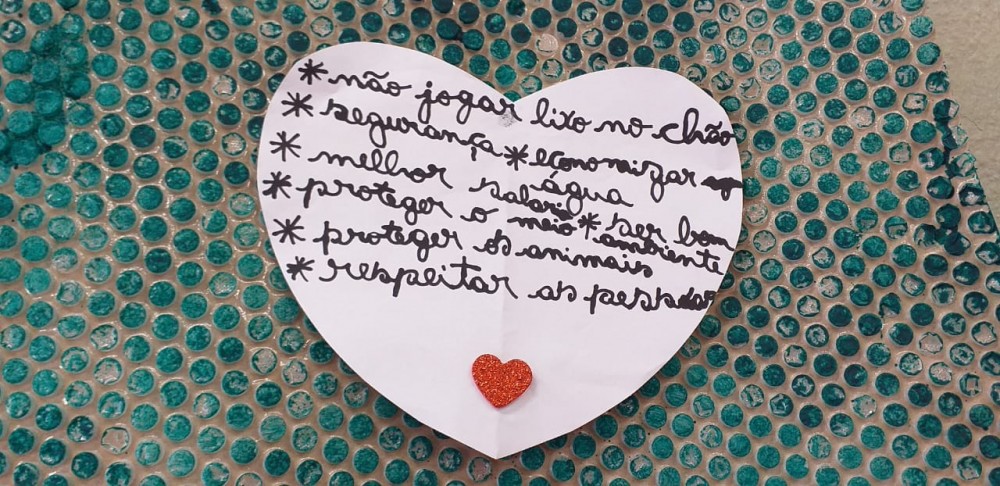 * não jogar lixo no chão
* segurança * economizar
água
* melhor salario * ser bom
* proteger o meio ambiente
* proteger os animais
* respeitar as pessoas